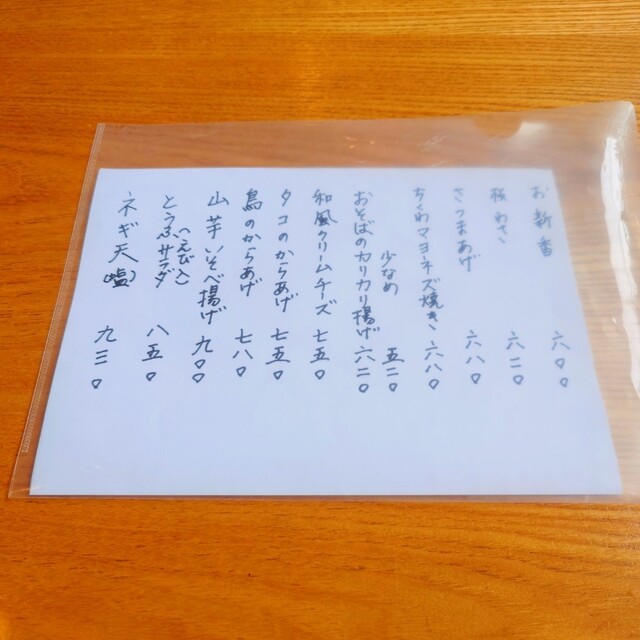 お新香 六〇〇
板わさ 六二〇
さつまあげ 六八〇
ちくわマヨネーズ焼き 六八〇
少なめ 五二〇
おそばのカリカリ揚げ 六二〇
和風クリームチーズ 七五〇
タコのからあげ 七五〇
鳥のからあげ 七八〇
山芋いそべ揚げ 九〇〇
とうふサラダ 八五〇
(えび入)
ネギ天(塩) 九三〇